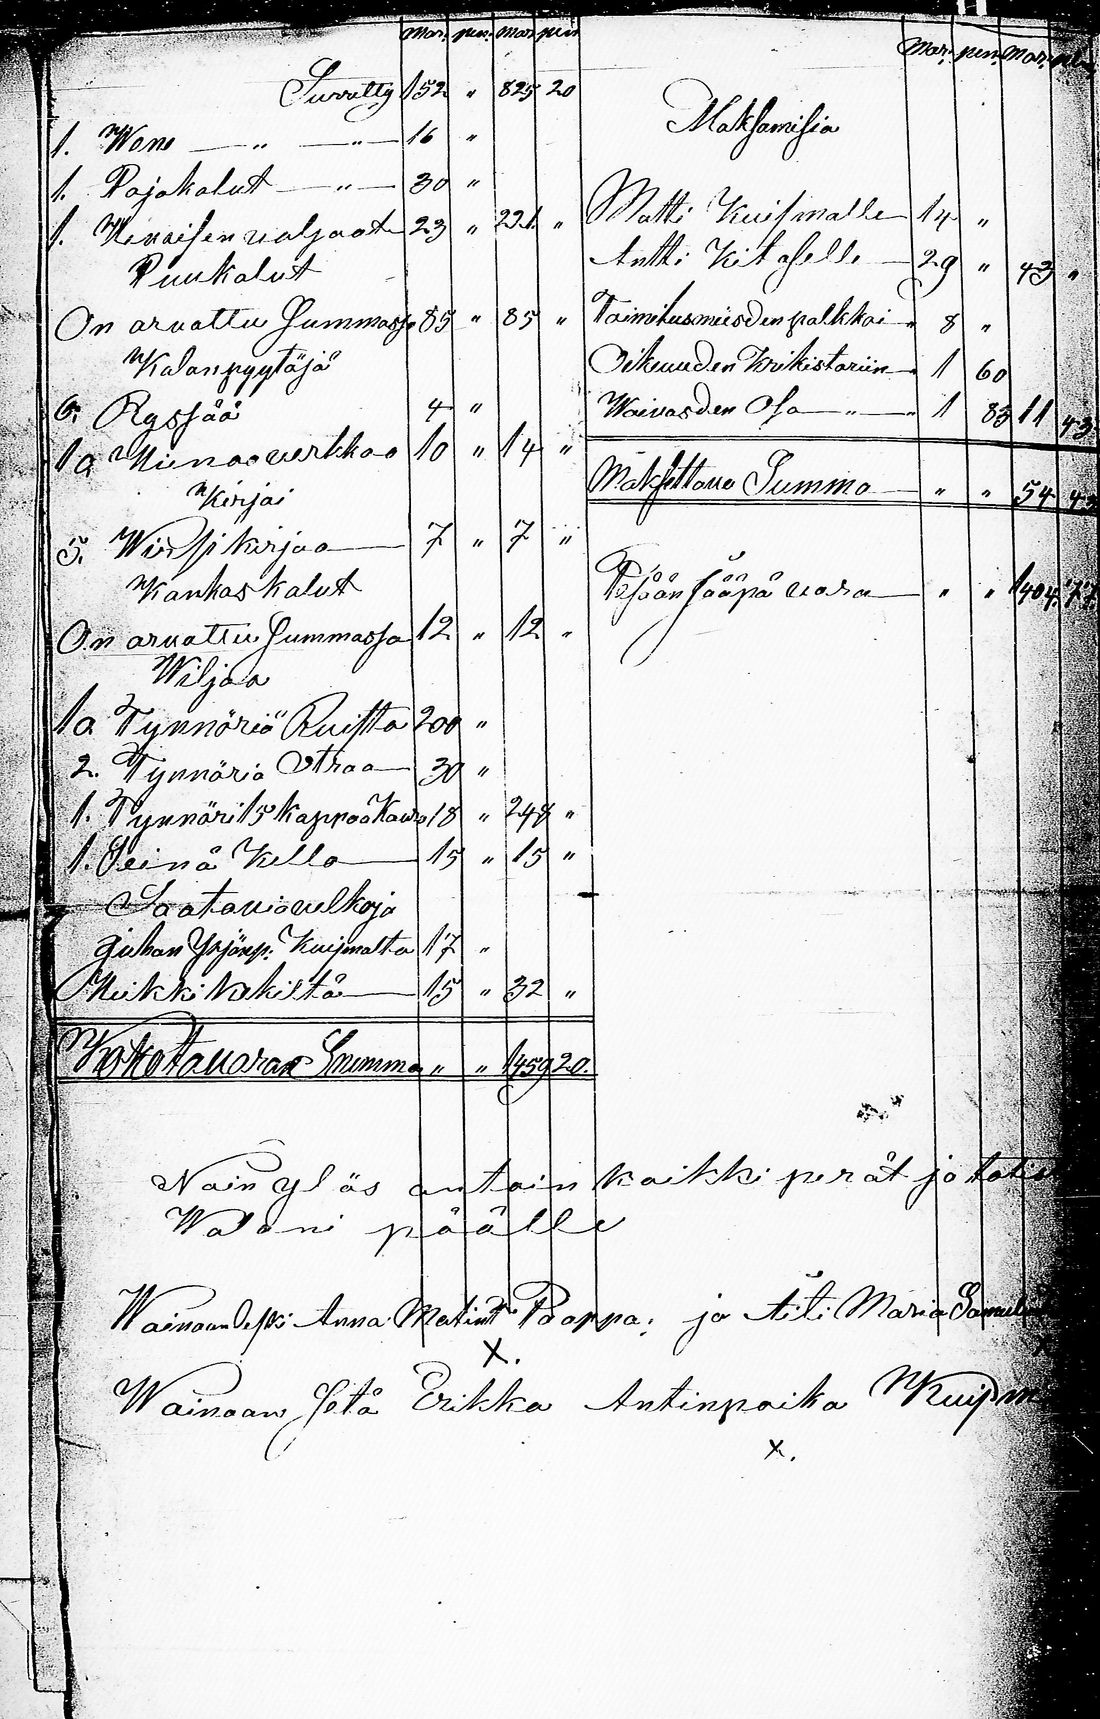 Mar. pen. Mar. pen
Surretty 152 " 825 20
1. Wene — " — " — 16 "
1. Pajakalut — " — 30 "
1. Hevoisen valjaat 23 " 221 "
Puukalut
On arvattu Summassa 85 " 85 "
Kalanpyytäjä
6. Ryssää 4 "
10 Nuottaverkkoa 10 " 14 "
Kirjai
5. Wirsikirjaa — 7 " 7 "
Kankaskalut
On arvattu Summassa 12 " 12 "
Wiljaa
10 Tynnöriä Ruista 200 "
2. Tynnöriä Otraa — 30 "
1. Tynnöri 15 kappaa Kaur 18 " 248 "
1. Seinä Kello — 15 " 15 "
Saatavia velkoja
Juhan Yrjönp: Kuismalta 17 "
Heikki Kekiltä — 15 " 32 "
Koko Tavaran Summa " " 1459 20.
Mar. pen. Mar. pen
Maksamisia
Matti Kuismalle 14 "
Antti Kitaselle — 29 " 43 "
Toimitusmiesden palkkai " 8 "
Oikeuuden Krikistariin — 1 60
Waivasden Osa — " — 1 83 11 43
Maksettava Summa — " " 54 43
Pesään jääpä vara — " " 1404. 77.
Näin ylös antoin kaikki perät ja
Walani päälle
Wainaan leski Anna Matint: Paappa: ja Äiti Maria
X.
Wainaan setä Erikka Antinpoika
x.